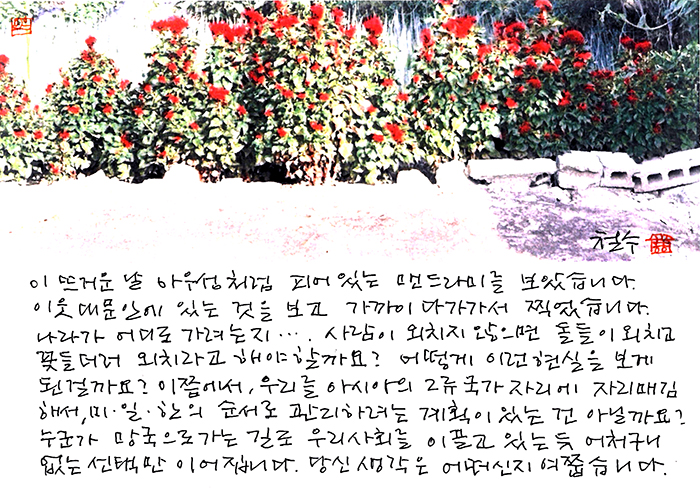 철수
이 뜨거운 날 아우성처럼 피어있는 맨드라미를 보았습니다.
이웃 대문앞에 있는 것을 보고 가까이 다가가서 찍었습니다.
나라가 어디로 가려는지···. 사람이 외치지 않으면 돌들이 외치고
꽃들더러 외치라고 해야 할까요? 어떻게 이런 현실을 보게
된걸까요? 이쯤에서, 우리를 아시아의 2류국가 자리에 자리매김
해서, 미·일·한의 순서로 관리하려는 계획이 있는 건 아닐까요?
누군가 망국으로 가는 길로 우리사회를 이끌고 있는 듯 어처구니
없는 선택만 이어집니다. 당신 생각은 어떠신지 여쭙습니다.